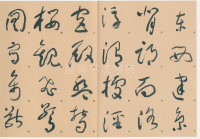 東西二京
背邙面洛
浮渭據涇
宮殿盤鬱
樓觀飛驚
圖寫禽獸